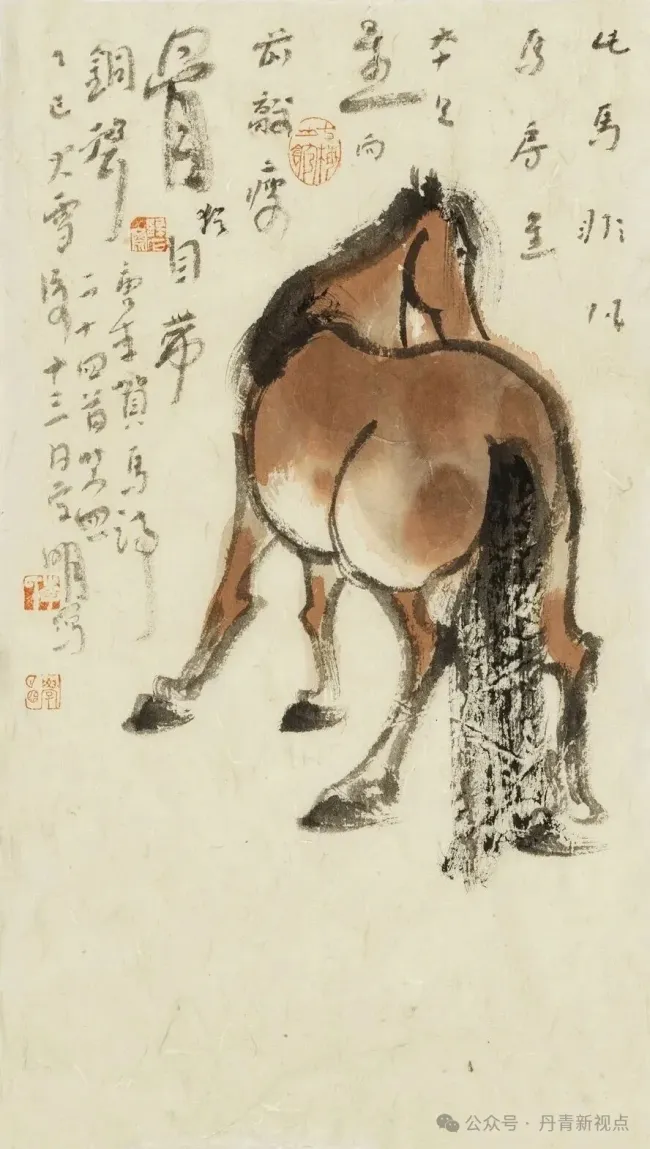 此馬非凡
馬房星
本是
星向
前敲瘦
骨
猶自帶
銅聲
唐李賀馬詩
二十四首其四
乙巳大雪後十三日明寫
公众号·丹青新视点